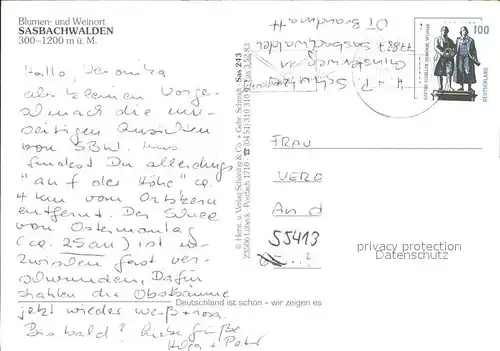 Blumen- und Weinort
SASBACHWALDEN
300–1200 m ü. M.
Hallo, Veronika
als kleinen Vorge-
schmack die um-
seitigen Ansichten
von SBW. Uns
findest Du allerdings
"auf der Höhe" ca.
4 km vom Ortskern
entfernt. Der Schnee
von Ostermontag
(ca. 25 cm) ist in-
zwischen fast ver-
schwunden. Dafür
strahlen die Obstbäume
jetzt wieder weiß + rosa.
Bis bald? Liebe Grüße
Helga + Peter
Deutschland ist schön – wir zeigen es
© Herst. u. Verlag Schöning & Co. + Gebr. Schmidt
23506 Lübeck · Postfach 1710 ☎ (04 51) 310 310
Sas 243
H + P
77887 Sasbachwalden
100
DEUTSCHLAND
GOETHE-SCHILLER-DENKMAL WEIMAR
FRAU
VERO
An d
55413
privacy protection
Datenschutz